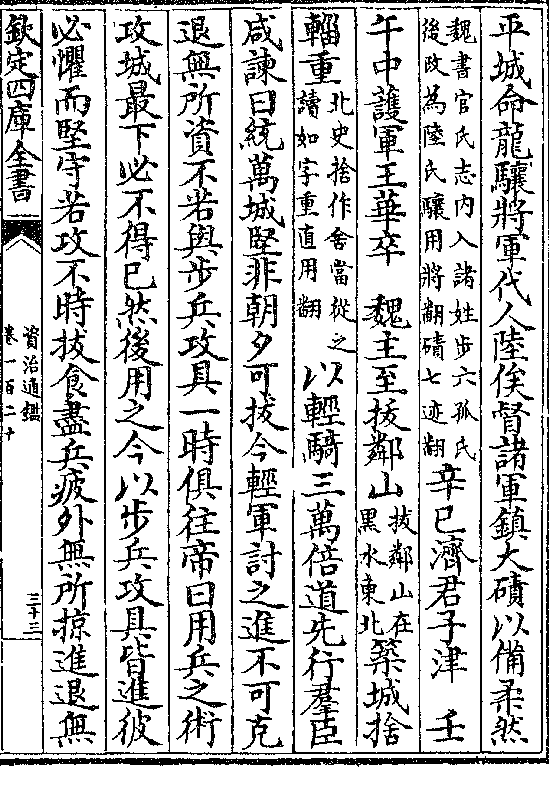 平城命龍驤將軍代人陸俟督諸軍鎮大磧以備柔然
魏書官氏志内入諸姓步六孤氏
後改為陸氏驤用將翻磧七迹翻
辛巳濟君子津 壬
午中䕶軍王華卒 魏主至拔鄰山
拔鄰山在
黑水東北
築城捨
輜重
北史捨作舍當從之
讀如字重直用翻
以輕騎三萬倍道先行羣臣
咸諫曰統萬城堅非朝夕可拔今輕軍討之進不可克
退無所資不若與步兵攻具一時俱往帝曰用兵之術
攻城最下必不得已然後用之今以步兵攻具皆進彼
必懼而堅守若攻不時拔食盡兵疲外無所掠進退無
欽定四庫全書
資治通鑑
卷一百二十
三十三